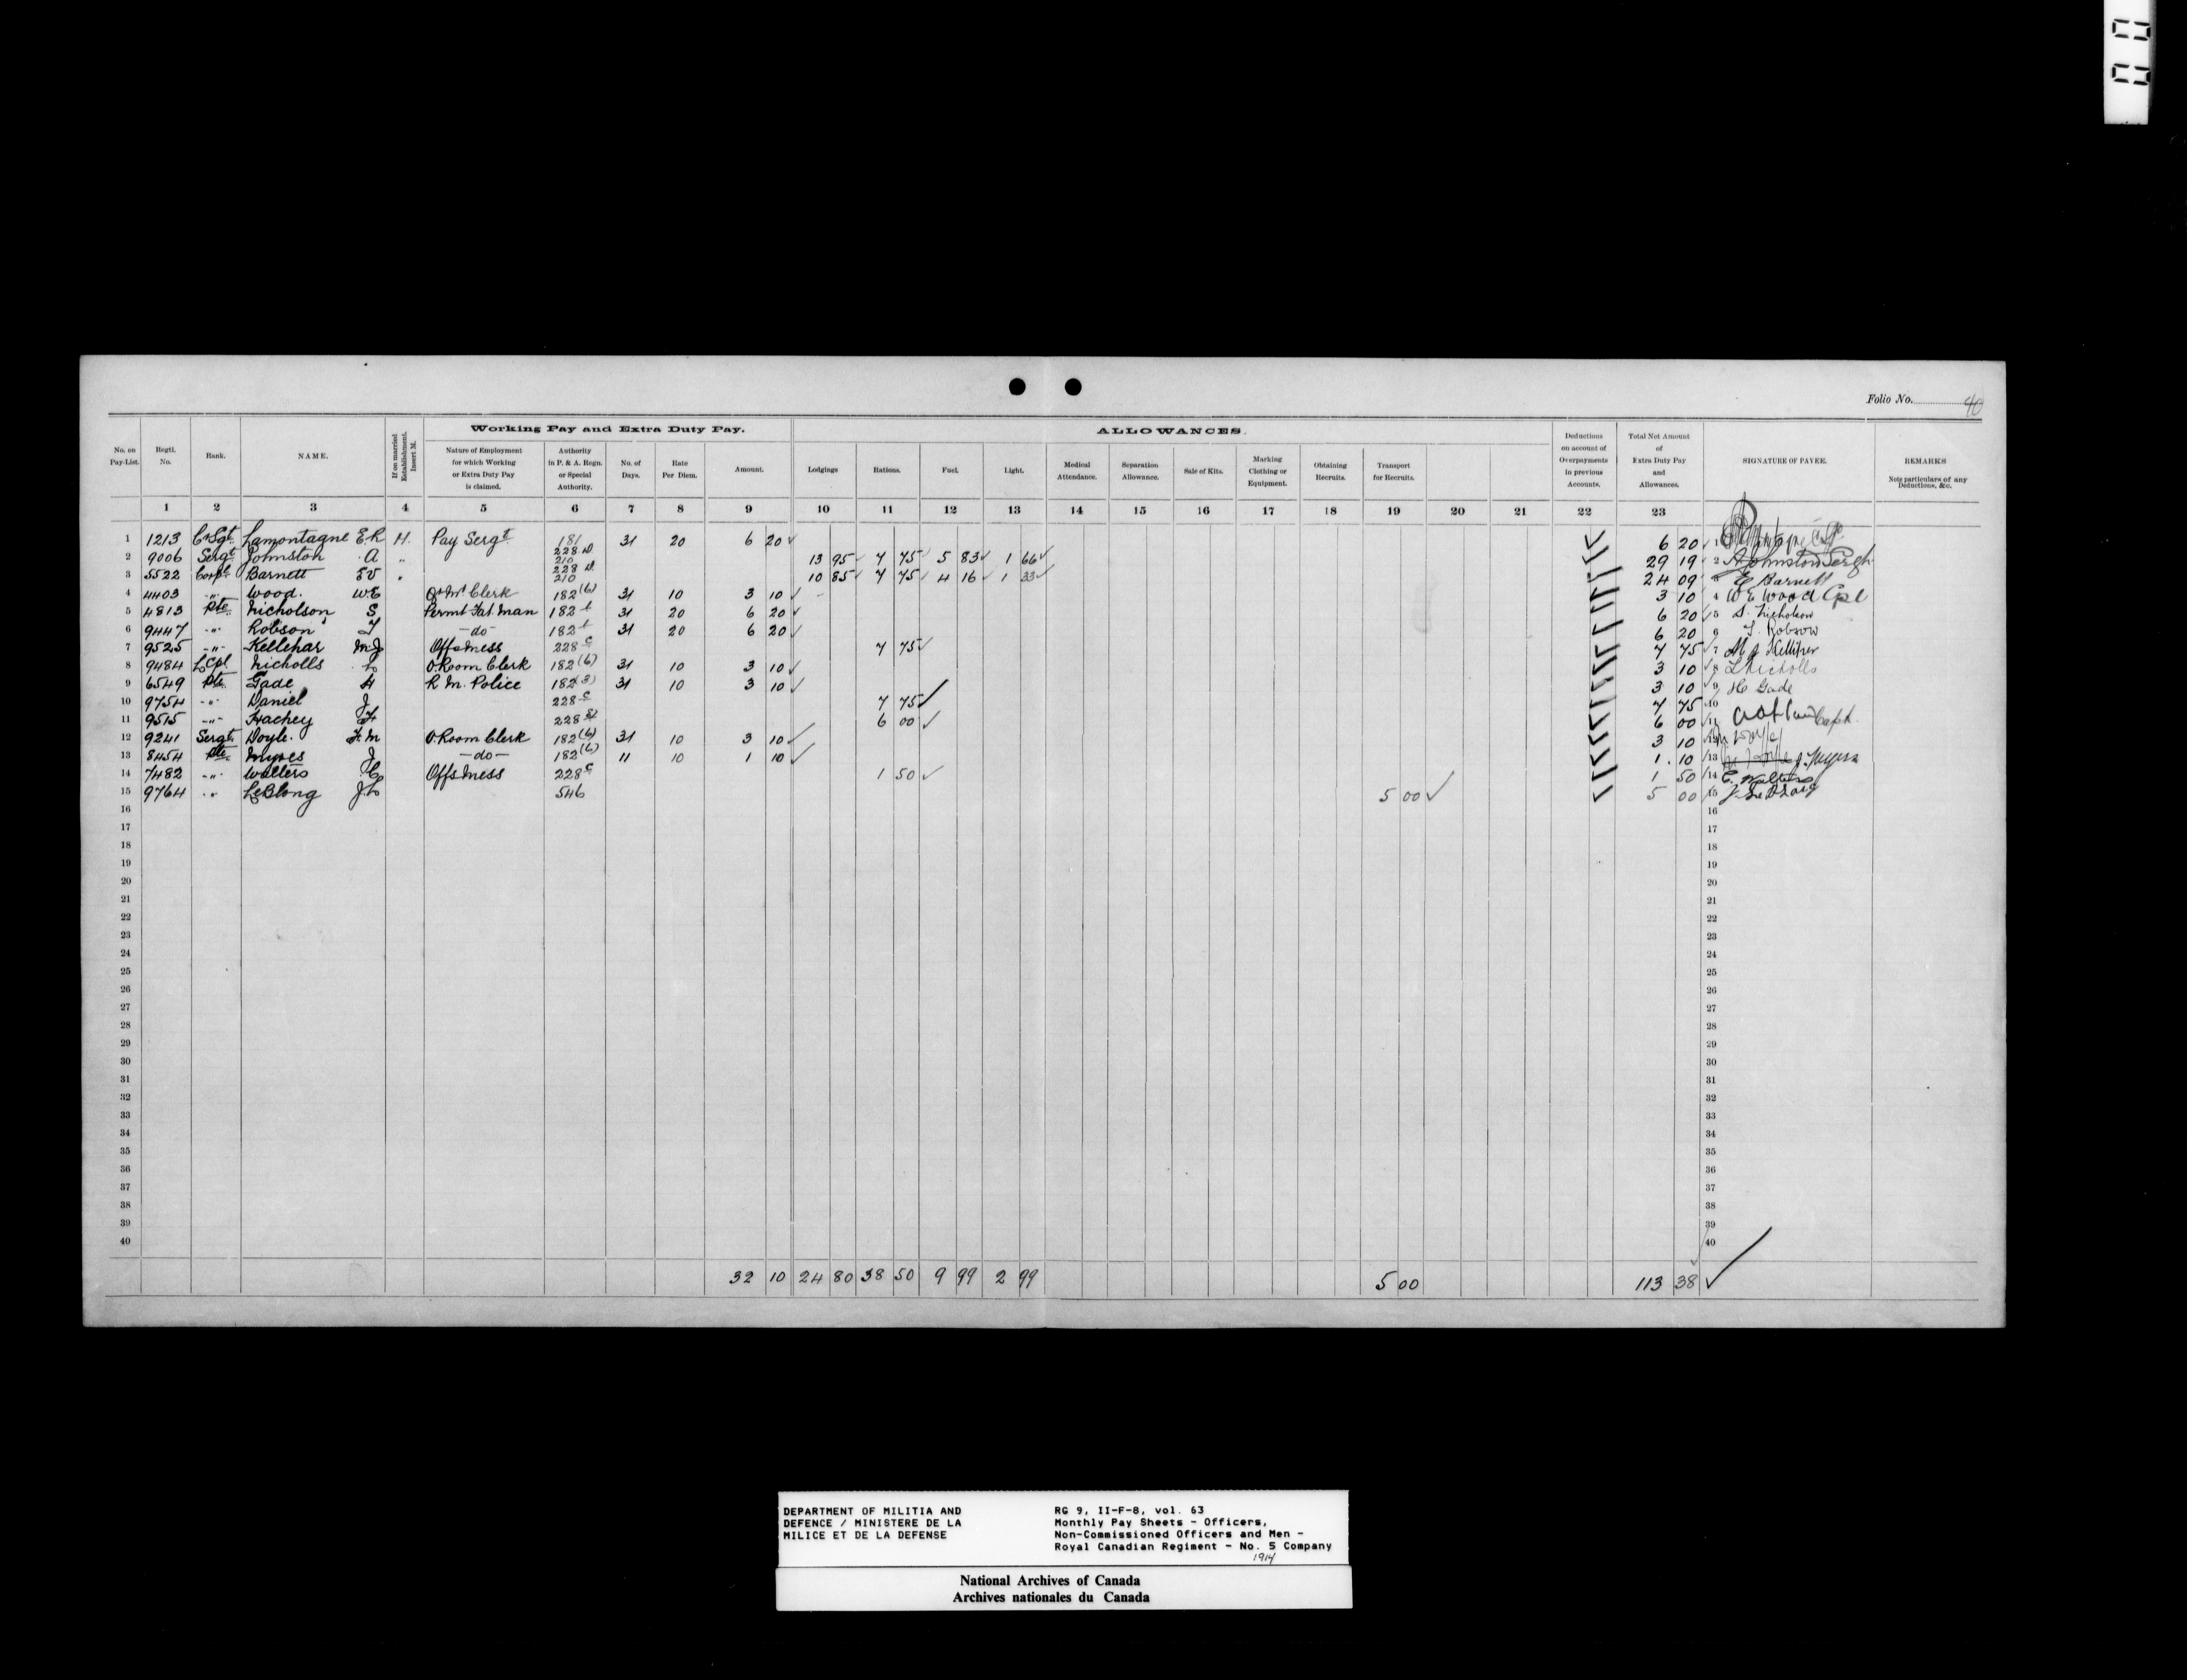 Folio No. 40
Working Pay and Extra Duty Pay.
ALLOWANCES.
No. on Pay-List.
Regtl. No.
Rank.
NAME.
If on married Establishment. Insert M.
Nature of Employment for which Working or Extra Duty Pay is claimed.
Authority in P. & A. Regn. or Special Authority.
No. of Days.
Rate Per Diem.
Amount.
Lodgings
Rations.
Fuel.
Light.
Medical Attendance.
Separation Allowance.
Sale of Kits.
Marking Clothing or Equipment.
Obtaining Recruits.
Transport for Recruits.
Deductions on account of Overpayments in previous Accounts.
Total Net Amount of Extra Duty Pay and Allowances.
SIGNATURE OF PAYEE.
REMARKS
Note particulars of any Deductions, &c.
1 2 3 4 5 6 7 8 9 10 11 12 13 14 15 16 17 18 19 20 21 22 23
1 1213 C.Sgt. Lamontagne E.R. M. Pay Sergt. 181 31 20 6 20 6 20 1
2 9006 Sergt Johnston A " 228 D 210 13 95 7 75 5 83 1 66 29 19 2 A Johnston Sergt
3 5522 Corpl Barnett EV " 228 D 210 10 85 7 75 4 16 1 33 24 09 3 E Barnett
4 4403 -"- Wood. W.E Qr Mr Clerk 182 (6) 31 10 3 10 3 10 4 W E Wood Cpl
5 4813 Pte. Nicholson S Permt Fat. Man 182 31 20 6 20 6 20 5 S. Nicholson
6 9447 -"- Robson T -do- 182 31 20 6 20 6 20 6 T. Robson
7 9525 -"- Kellehar M.J Offs Mess 228 c 7 75 7 75 7 M J
8 9484 L Cpl Nicholls L O. Room Clerk 182 (6) 31 10 3 10 3 10 8 L Nicholls
9 6549 Pte. Gade H R. M. Police 182 (3) 31 10 3 10 3 10 9 H Gade
10 9754 -"- Daniel J 228 c 7 75 7 75 10
11 9515 -"- Hachey F 228 6 00 6 00 11 Capt.
12 9241 Sergt. Doyle. F.M O. Room Clerk 182 (6) 31 10 3 10 3 10 12
13 8454 Pte. Myres J -do- 182 (6) 11 10 1 10 1.10 13 J. Myers
14 7482 -"- Walters C Offs Mess 228 c 1 50 1 50 14 C. Walters
15 9764 -"- LeBlong J.L 546 5 00 5 00 15
16 16
17 17
18 18
19 19
20 20
21 21
22 22
23 23
24 24
25 25
26 26
27 27
28 28
29 29
30 30
31 31
32 32
33 33
34 34
35 35
36 36
37 37
38 38
39 39
40 40
32 10 24 80 38 50 9 99 2 99 5 00 113 38
DEPARTMENT OF MILITIA AND
DEFENCE / MINISTERE DE LA
MILICE ET DE LA DEFENSE
RG 9, II-F-8, vol. 63
Monthly Pay Sheets - Officers,
Non-Commissioned Officers and Men -
Royal Canadian Regiment - No. 5 Company
1914
National Archives of Canada
Archives nationales du Canada